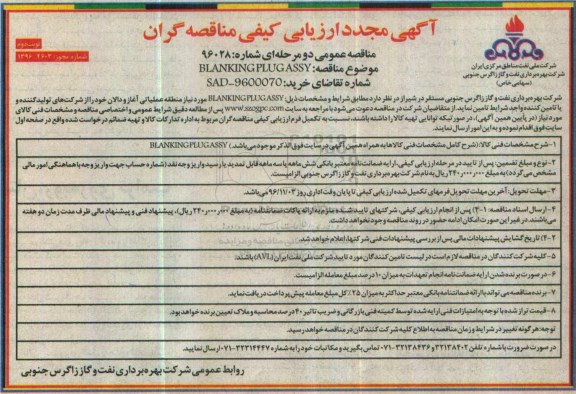 آگهی مجدد ارزیابی کیفی مناقصه گران
نوبت دوم
مناقصه عمومی دو مرحله ای شماره: ۹۶۰۲۸
موضوع مناقصه: BLANKING PLUG ASSY
شماره تقاضای خرید: SAD-9600070
شرکت ملی نفت مناطق مرکزی ایران
شرکت بهره برداری نفت و گاز زاگرس جنوبی
(سهامی خاص)
شرکت بهره برداری نفت و گاز زاگرس جنوبی مستقر در شیراز در نظر دارد مطابق شرایط و مشخصات ذیل: BLANKING PLUG ASSY مورد نیاز منطقه عملیاتی آغار و دالان خود را از شرکت های تولید کننده و
یا تامین کننده واجد شرایط تامین نماید. از متقاضیان شرکت در مناقصه دعوت می شود با مراجعه به سایت www.szogpc.com پس از مطالعه دقیق شرایط عمومی و اختصاصی مناقصه و مشخصات فنی کالای
مورد نیاز (در پایین همین آگهی)، در صورتیکه توانایی تهیه کالا را داشته باشند، نسبت به تکمیل فرم ارزیابی کیفی مناقصه گران مربوط به اداره تدارکات کالا و تهیه ضمائم درخواست شده واقع در صفحه اول
سایت فوق اقدام نموده و به این امور ارسال نمایند.
۱- شرح مشخصات فنی کالا: (شرح کامل مشخصات فنی کالاها به همراه همین آگهی در سایت فوق الذکر موجود می باشد.) BLANKING PLUG ASSY
۲- نوع و مبلغ تضمین: پس از تایید در مرحله ارزیابی کیفی، ارایه ضمانت نامه معتبر بانکی شش ماهه یا سه ماهه قابل تمدید یا رسید واریز وجه نقد (شماره حساب جهت واریز وجه با هماهنگی امور مالی
مشخص می گردد) به مبلغ ۲۴۰,۰۰۰,۰۰۰ ریال به نام شرکت بهره برداری نفت و گاز زاگرس جنوبی الزامیست.
۳- مهلت تحویل: آخرین مهلت تحویل فرمهای تکمیل شده ارزیابی کیفی تا پایان وقت اداری روز ۹۶/۱۱/۰۳ می باشد.
۴- ارسال اسناد مناقصه: ۱-۴) پس از انجام ارزیابی کیفی، شرکتهای تایید شده ملزم به ارائه پاکات ضمانتنامه (به مبلغ ۲۴۰,۰۰۰,۰۰۰ ریال)، پیشنهاد فنی و پیشنهاد مالی ظرف مدت زمان دو هفته
می باشند. در غیر این صورت امکان ادامه حضور در روند مناقصه وجود نخواهد داشت.
۲-۴) تاریخ گشایش پیشنهادات مالی پس از بررسی پیشنهادات فنی شرکتها اعلام خواهد شد.
۵- کلیه شرکت کنندگان در مناقصه لازم است در لیست تامین کنندگان مورد تایید شرکت ملی نفت ایران (AVL) باشند.
۶- در صورت برنده شدن ارائه ضمانت نامه انجام تعهدات به میزان ۱۰ درصد مبلغ معامله الزامیست.
۷- برنده مناقصه می تواند با ارائه ضمانتنامه بانکی معتبر حداکثر به میزان ۲۵٪ کل مبلغ معامله پیش پرداخت دریافت نماید.
۸- قیمت تراز شده با توجه به امتیازات فنی ارایه شده توسط کمیته فنی بازرگانی و ضریب تاثیر ۴۰ درصد محاسبه و ملاک تعیین برنده خواهد بود.
توجه: هر گونه تغییر در شرایط و زمان مناقصه به اطلاع کلیه شرکت کنندگان در مناقصه خواهد رسید.
در صورت ضرورت با شماره تلفن ۳۲۱۳۸۴۰۲ و ۳۲۱۳۸۴۳۶-۰۷۱ تماس بگیرید و مکاتبات خود را به شماره ۳۲۳۱۴۴۴۷-۰۷۱ ارسال نمایید.
روابط عمومی شرکت بهره برداری نفت و گاز زاگرس جنوبی